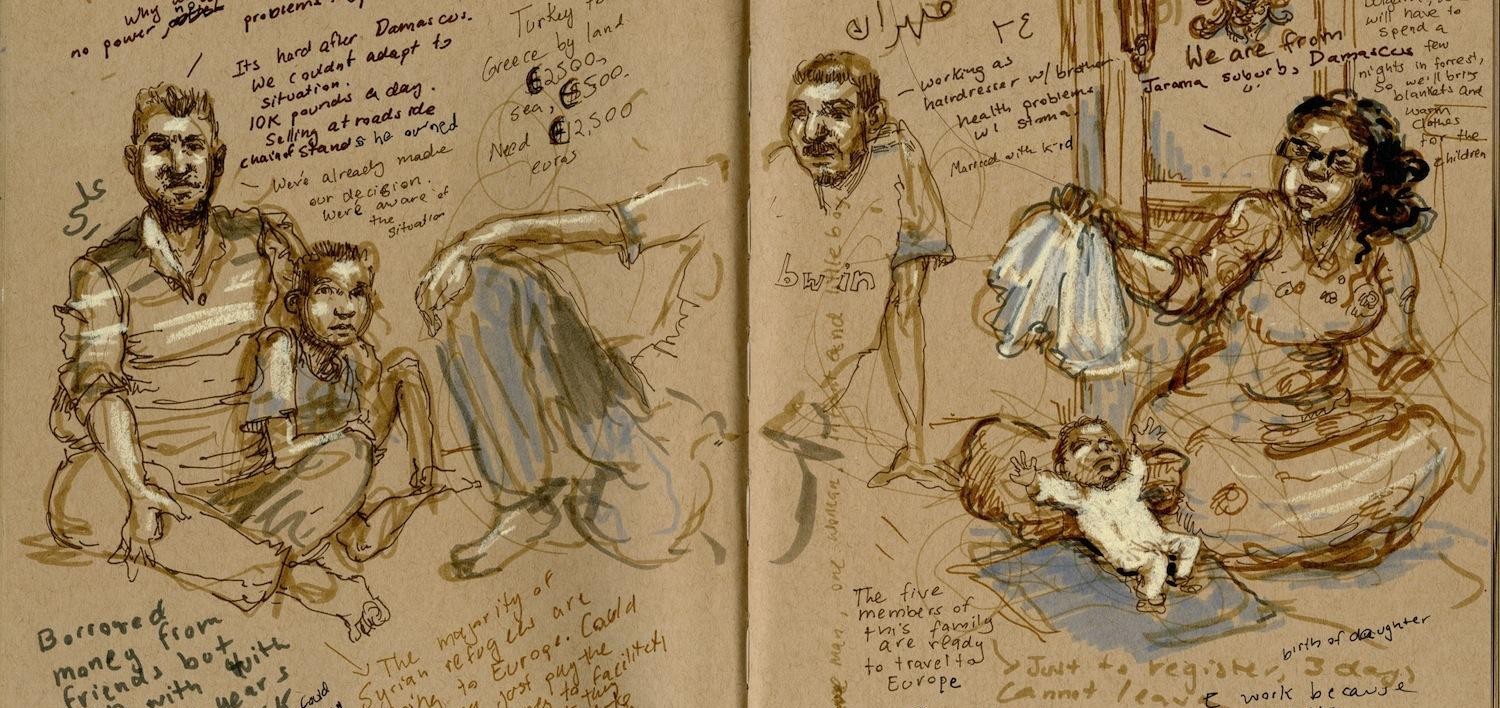 Why
no power
problems
Its hard after Damascus.
We couldnt adapt to
situation.
10K pounds a day.
Selling at roadside
chain of stands he owned
We've already made
our decision.
We're aware of
the
situation
Turkey to
Greece by land
€2500,
sea, €500.
Need €12,500
euros
Borrowed
money from
friends but
with with
years
could
The majority of
Syrian refugees are
going to Europe. Could
just pay the
to facilitate
٢٤
working as
hairdresser w/ brother
health problems
w/ stoma
Married with kid
bwin
one man, one woman and little boy
We are from
Jarama suburbs Damascus
will have to
spend a
few
nights in forrest,
So we'll bring
blankets and
warm
clothes
for the
children
The five
members of
this family
are ready
to travel to
Europe
birth of daughter
Just to register, 3 days
Cannot leave
work because